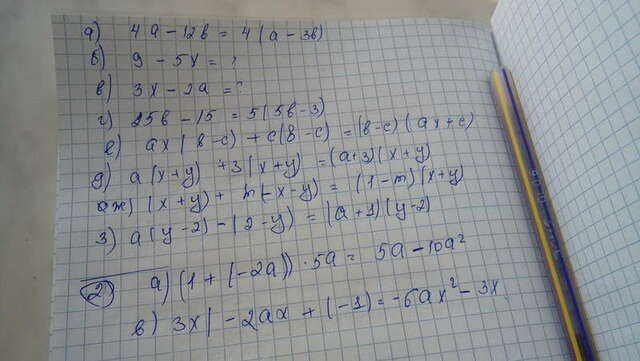 а) 4a - 12b = 4(a - 3b)
б) 9 - 5x = ?
в) 3x - 2a = ?
г) 25b - 15 = 5(5b - 3)
е) ax(b-c) + c(b-c) = (b-c)(ax+c)
д) a(x+y) + 3(x+y) = (a+3)(x+y)
ж) (x+y) + m(-x-y) = (1-m)(x+y)
з) a(y-2) - (2+y) = (a+1)(y-2)
② а) (1 + (-2a)) · 5a = 5a - 10a²
в) 3x(-2ax + (-1) = -6ax² - 3x